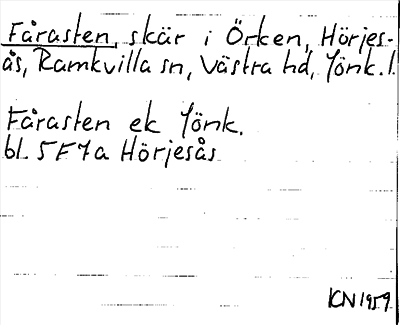 Fårasten, skär i Örken, Hörjes-
ås, Ramkvilla sn, Västra hd, Jönk. l.
Fårasten ek Jönk.
bl. 5F7a Hörjesås
KN 1959